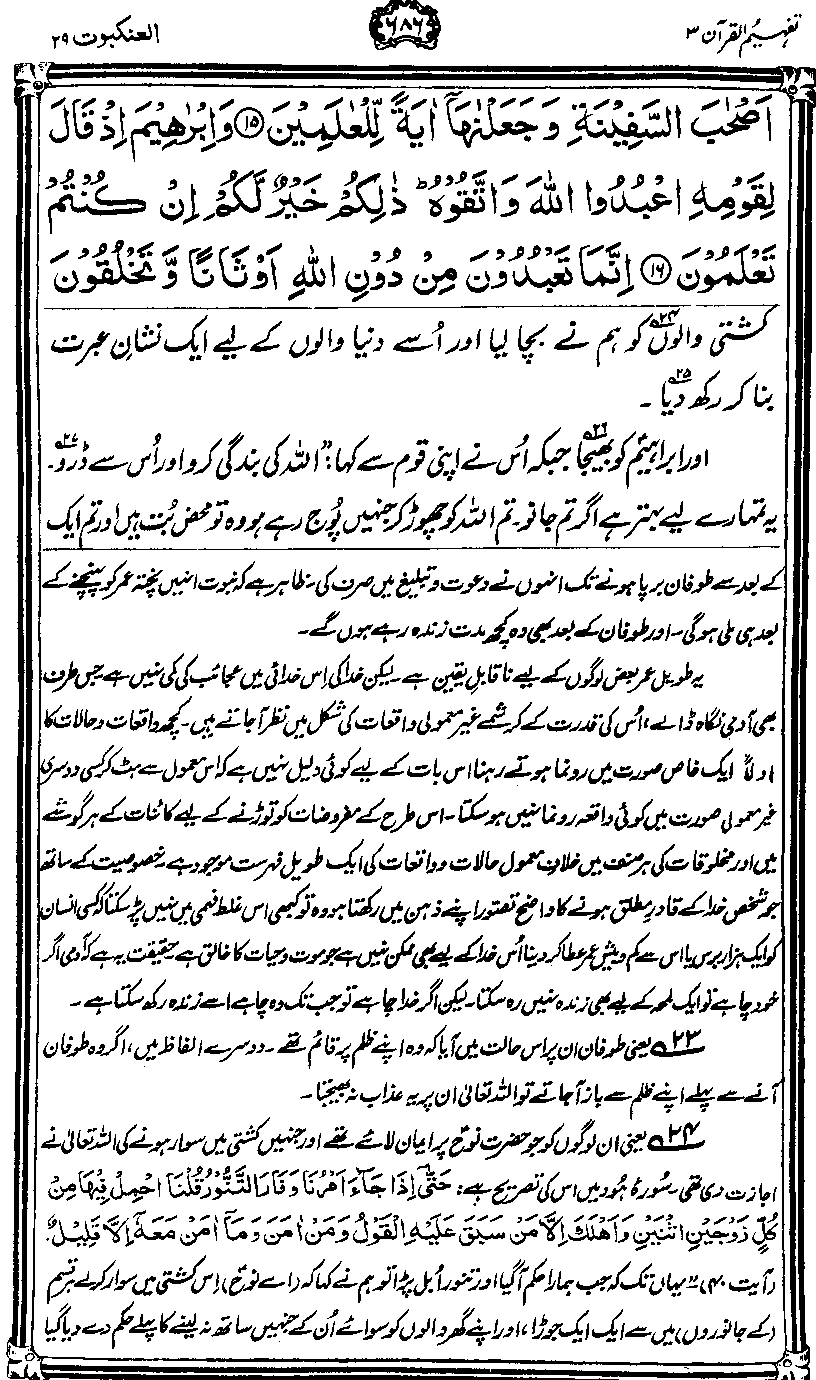 تفہیم القرآن ۳
۶۸۶
العنکبوت ۲۹
اَصْحٰبَ السَّفِيْنَةِ وَجَعَلْنٰهَاۤ اٰيَةً لِّلْعٰلَمِيْنَ ۝۱۵ وَاِبْرٰهِيْمَ اِذْ قَالَ
لِقَوْمِهِ اعْبُدُوا اللّٰهَ وَاتَّقُوْهُ ؕ ذٰلِكُمْ خَيْرٌ لَّكُمْ اِنْ كُنْتُمْ
تَعْلَمُوْنَ ۝۱۶ اِنَّمَا تَعْبُدُوْنَ مِنْ دُوْنِ اللّٰهِ اَوْثَانًا وَّ تَخْلُقُوْنَ
کشتی والوں۲۴ کو ہم نے بچا لیا اور اُسے دنیا والوں کے لیے ایک نشانِ عبرت
بنا کر رکھ دیا۲۵۔
اور ابراہیمؑ کو بھیجا۲۶ جبکہ اُس نے اپنی قوم سے کہا: "اللہ کی بندگی کرو اور اُس سے ڈرو۲۷۔
یہ تمہارے لیے بہتر ہے اگر تم جانو۔ تم اللہ کو چھوڑ کر جنہیں پُوج رہے ہو وہ تو محض بُت ہیں اور تم ایک
کے بعد سے طوفان برپا ہونے تک انہوں نے دعوت و تبلیغ میں صرف کی۔ ظاہر ہے کہ نبوت انہیں پختہ عمر کو پہنچنے کے
بعد ہی ملی ہوگی۔ اور طوفان کے بعد بھی وہ کچھ مدت زندہ رہے ہوں گے۔
یہ طویل عمر بعض لوگوں کے لیے ناقابلِ یقین ہے۔ لیکن خدا کی اِس خدائی میں عجائب کی کمی نہیں ہے جس طرف
بھی آدمی نگاہ ڈالے، اُس کی قدرت کے کرشمے غیر معمولی واقعات کی شکل میں نظر آ جاتے ہیں۔ کچھ واقعات و حالات کا
اولاً ایک خاص صورت میں رونما ہوتے رہنا اس بات کے لیے کوئی دلیل نہیں ہے کہ اس معمول سے ہٹ کر کسی دوسری
غیر معمولی صورت میں کوئی واقعہ رونما نہیں ہو سکتا۔ اس طرح کے مفروضات کو توڑنے کے لیے کائنات کے ہر گوشے
میں اور مخلوقات کی ہر صنف میں خلافِ معمول حالات و واقعات کی ایک طویل فہرست موجود ہے۔ خصوصیت کے ساتھ
جو شخص خدا کے قادرِ مطلق ہونے کا واضح تصور اپنے ذہن میں رکھتا ہو وہ تو کبھی اس غلط فہمی میں نہیں پڑ سکتا کہ کسی انسان
کو ایک ہزار برس یا اس سے کم و بیش عمر عطا کر دینا اُس خدا کے لیے بھی ممکن نہیں ہے جو موت و حیات کا خالق ہے۔ حقیقت یہ ہے کہ آدمی اگر
خود چاہے تو ایک لمحہ کے لیے بھی زندہ نہیں رہ سکتا۔ لیکن اگر خدا چاہے تو جب تک وہ چاہے اسے زندہ رکھ سکتا ہے۔
۲۳ یعنی طوفان ان پر اس حالت میں آیا کہ وہ اپنے ظلم پر قائم تھے۔ دوسرے الفاظ میں، اگر وہ طوفان
آنے سے پہلے اپنے ظلم سے باز آ جاتے تو اللہ تعالیٰ ان پر یہ عذاب نہ بھیجتا۔
۲۴ یعنی ان لوگوں کو جو حضرت نوحؑ پر ایمان لائے تھے اور جنہیں کشتی میں سوار ہونے کی اللہ تعالیٰ نے
اجازت دی تھی۔ سُورۂ ہُود میں اس کی تصریح ہے: حَتّٰىٓ اِذَا جَآءَ اَمْرُنَا وَفَارَ التَّنُّوْرُ قُلْنَا احْمِلْ فِيْهَا مِنْ
كُلٍّ زَوْجَيْنِ اثْنَيْنِ وَاَهْلَكَ اِلَّا مَنْ سَبَقَ عَلَيْهِ الْقَوْلُ وَمَنْ اٰمَنَ وَمَآ اٰمَنَ مَعَهٗٓ اِلَّا قَلِيْلٌ۔
(آیت ۴۰) "یہاں تک کہ جب ہمارا حکم آ گیا اور تنور اُبل پڑا تو ہم نے کہا کہ (اے نوحؑ) اِس کشتی میں سوار کر لے ہر قسم
(کے جانوروں) میں سے ایک ایک جوڑا، اور اپنے گھر والوں کو سوائے اُن کے جنہیں ساتھ نہ لینے کا پہلے حکم دے دیا گیا